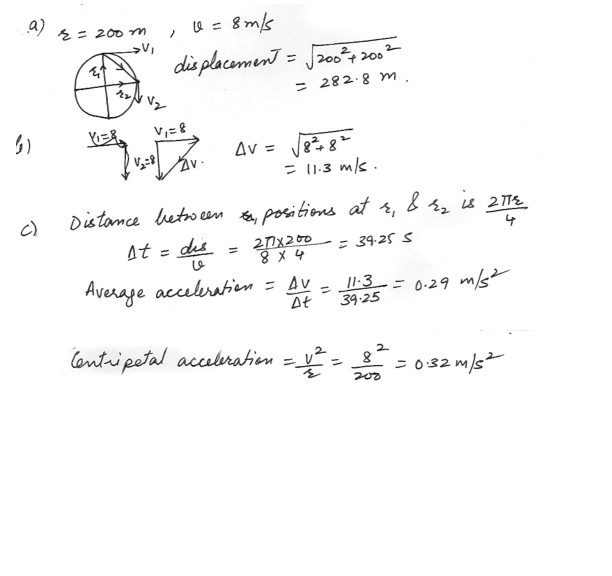 a) r = 200 m , v = 8 m/s
V₁
r₁
r₂
V₂
displacement = √200² + 200²
= 282.8 m .
b)
V₁=8
V₂=8
V₁=8
ΔV.
ΔV = √8² + 8²
= 11.3 m/s .
c) Distance between positions at r₁ & r₂ is 2πr/4
Δt = dis/v = 2π×200/8 × 4 = 39.25 s
Average acceleration = ΔV/Δt = 11.3/39.25 = 0.29 m/s²
Centripetal acceleration = v²/r = 8²/200 = 0.32 m/s²